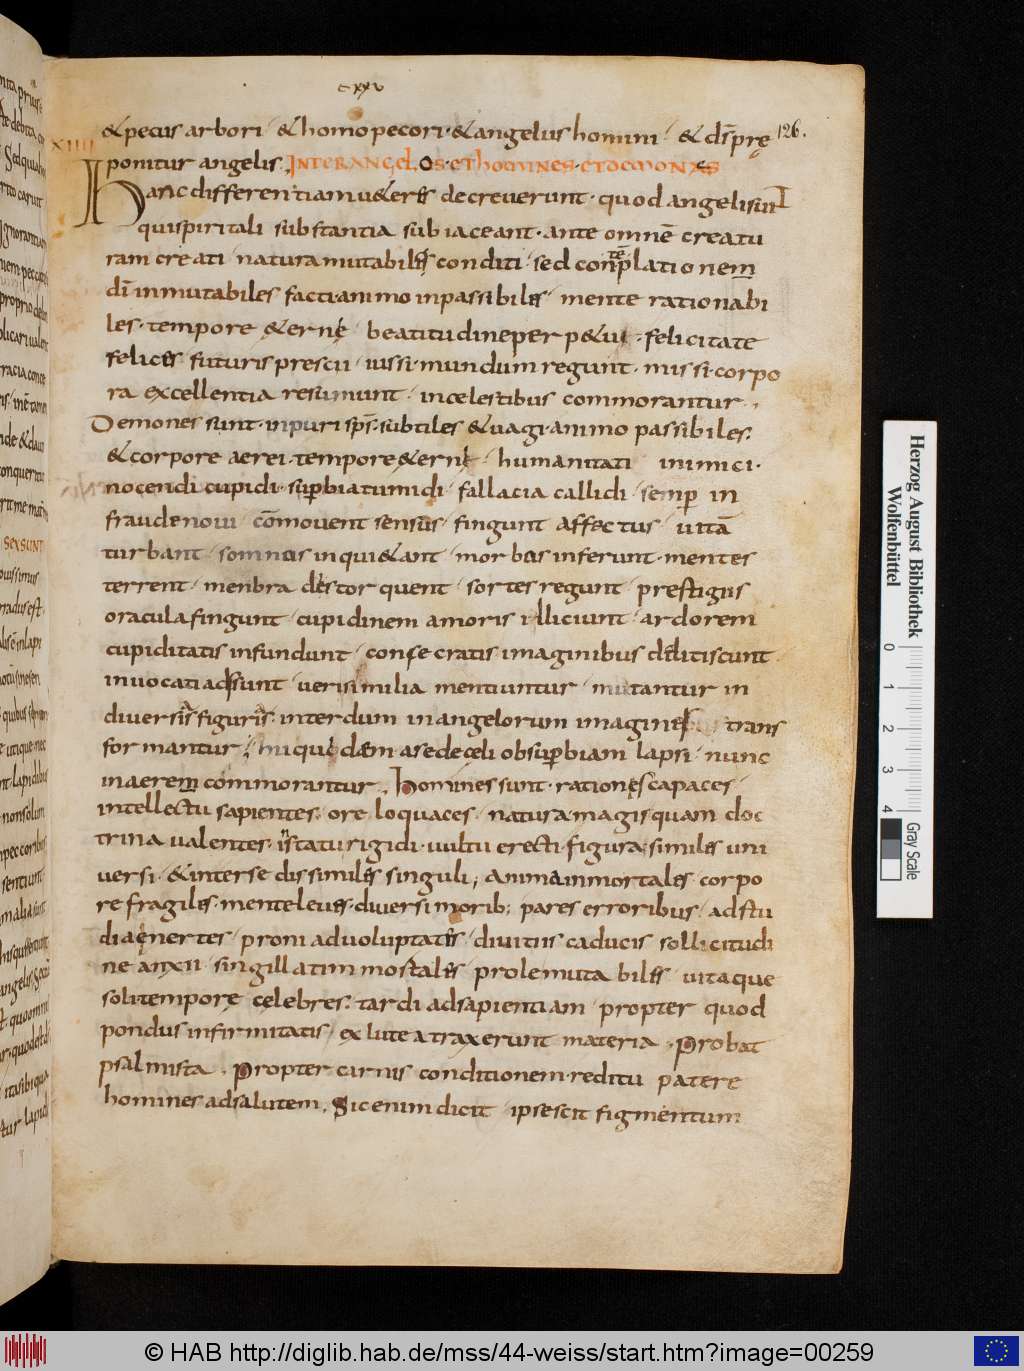 cxxv
& pecus arbori · & homo pecori · & angelus homini · & ds̄ prę
126.
xiiii
ponitur angelis. INTER ANGELOS · ET HOMINES · ET DEMONES
Hanc differentiam u&eres decreuerunt · quod angeli sint
qui spiritali substantia subiaceant · ante omnē creatu
ram creati natura mutabiles conditi · sed contēplationem
dī inmutabiles facti · animo inpassibiles · mente rationabi
les · tempore &ernę · beatitudine perp&ui · felicitate
felices futuris prescii · iussi · mundum regunt · missi · corpo
ra excellentia resumunt · in celestibus commorantur .,
Demones sunt · inpuri sps̄ · subtiles & uagi · animo passibiles.
& corpore aerei · tempore &ernę · humanitati inimici ·
nocendi cupidi · suꝑbia tumidi · fallacia callidi · semꝑ in
fraude noui · cōmouent sensus · fingunt affectus · uitā
turbant · somnos inqui&ant · morbos inferunt · mentes
terrent · menbra destorquent · sortes regunt · prestigiis
oracula fingunt · cupidinem amoris illiciunt · ardorem
cupiditatis infundunt · consecratis imaginibus delitiscunt
inuocati adsunt · uerisimilia mentiuntur · mutantur in
diuersis figuris · interdum in angelorum imagine trans
formantur · hi quędam a sede cęli ob suꝑbiam lapsi · nunc
in aerem commorantur . Homines sunt · rationes capaces ·
intellectu sapientes · ore loquaces · natura magis quam doc
trina ualentes · statu rigidi · uultu erecti · figura similes uni
uersi · & inter se dissimiles singuli ; anima inmortales · corpo
re fragiles · mente leues · diuersi morib; pares erroribus · ad stu
dia enertes · proni ad uoluptates · diuitiis caducis sollicitudi
ne anxii · singillatim mostales · prole mutabiles uitaque
soli tempore celebres · tardi ad sapientiam propter quod
pondus infirmitatis · ex lutea traxerunt materia . Probat
psalmista . Propter carnis conditionem · reditu patere
homines ad salutem . Sic enim dicit · ipse scit figmentum
SEX SUNT
Herzog August Bibliothek
Wolfenbüttel
0 1 2 3 4
Gray Scale
© HAB http://diglib.hab.de/mss/44-weiss/start.htm?image=00259